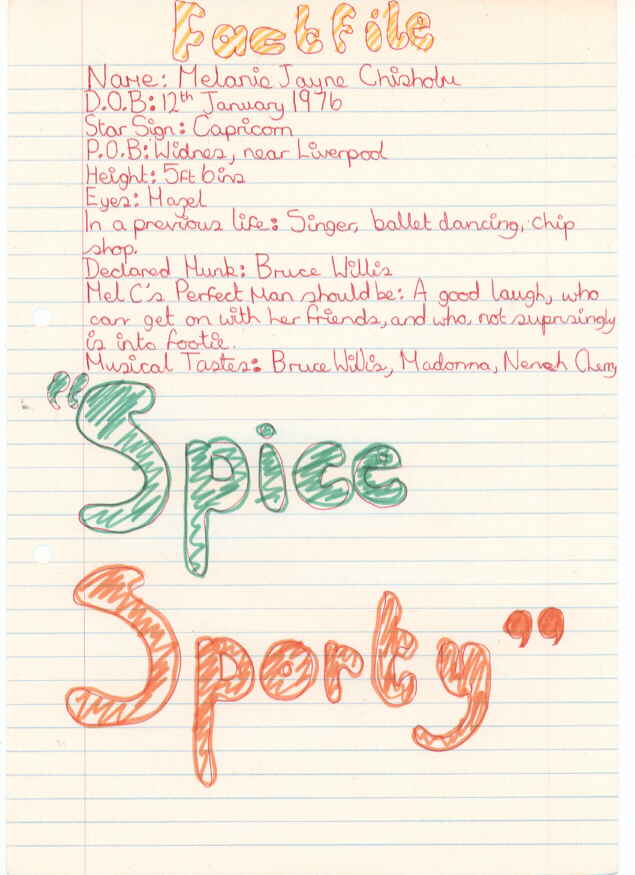 Factfile
Name: Melanie Jayne Chisholm
D.O.B: 12th January 1976
Star Sign: Capricorn
P.O.B: Widnes, near Liverpool
Height: 5ft 6ins
Eyes: Hazel
In a previous life: Singer, ballet dancing, chip
shop.
Declared Hunk: Bruce Willis
Mel C's Perfect Man should be: A good laugh, who
can get on with her friends, and who, not suprisingly
is into footie.
Musical Tastes: Bruce Willis, Madonna, Neneh Cherry
"Spice
Sporty"